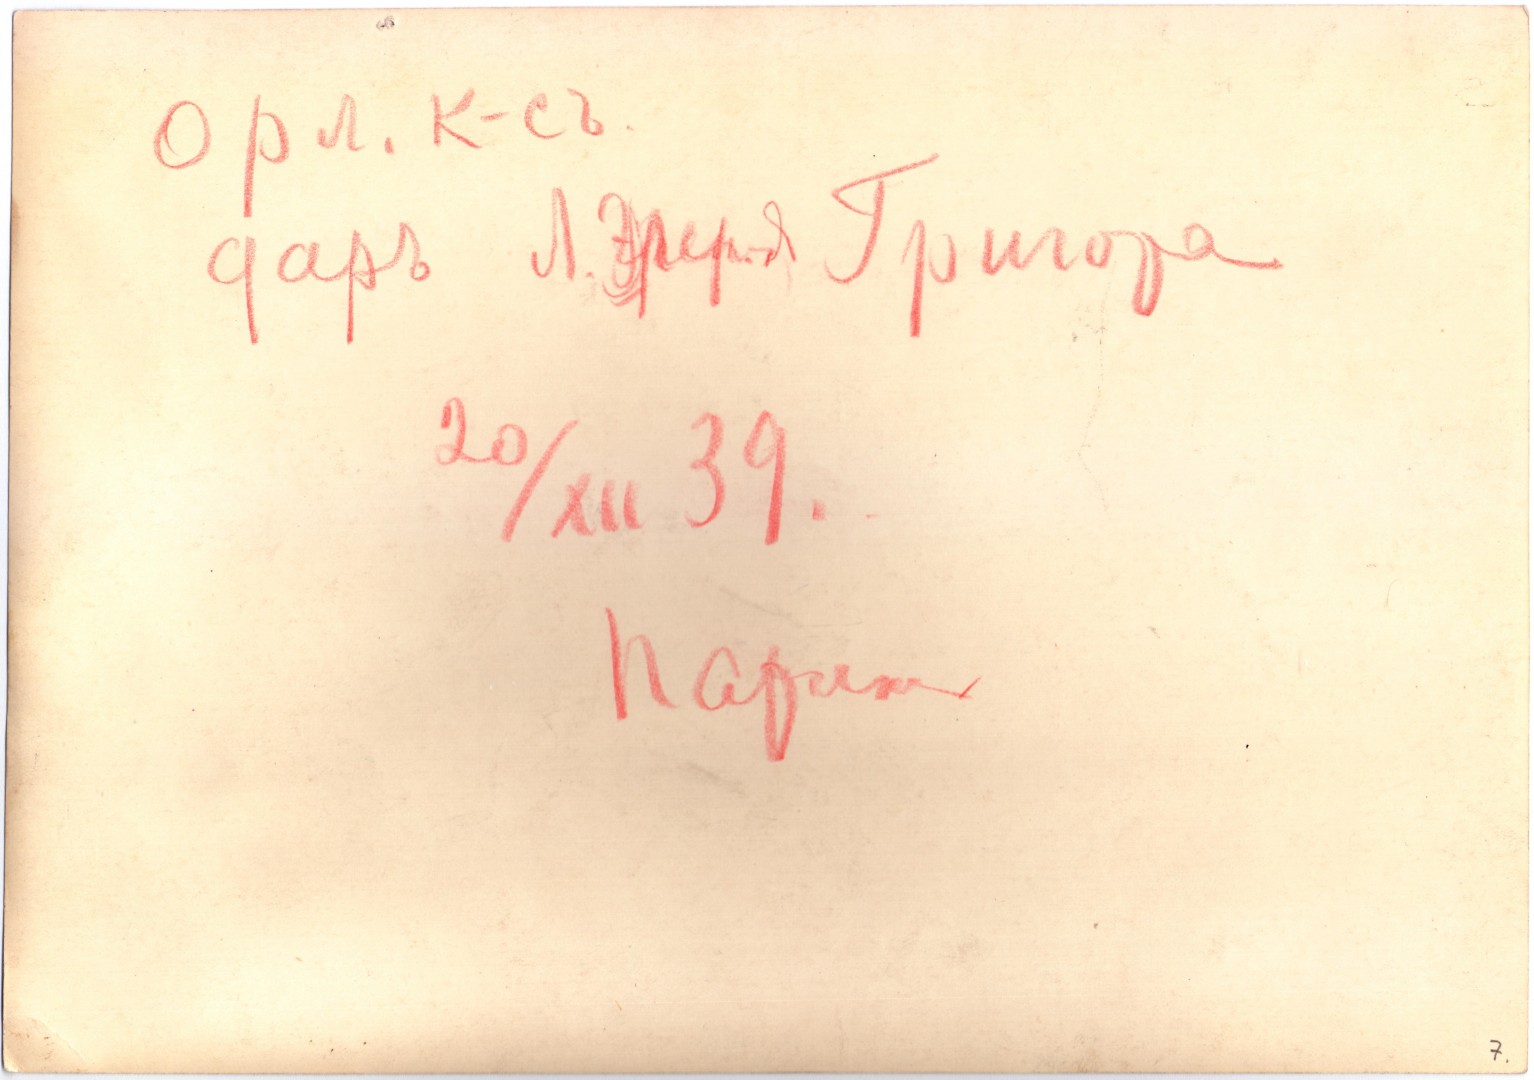 Орл. к-съ.
даръ Л. Григора
20/XII 39.
Париж
7.